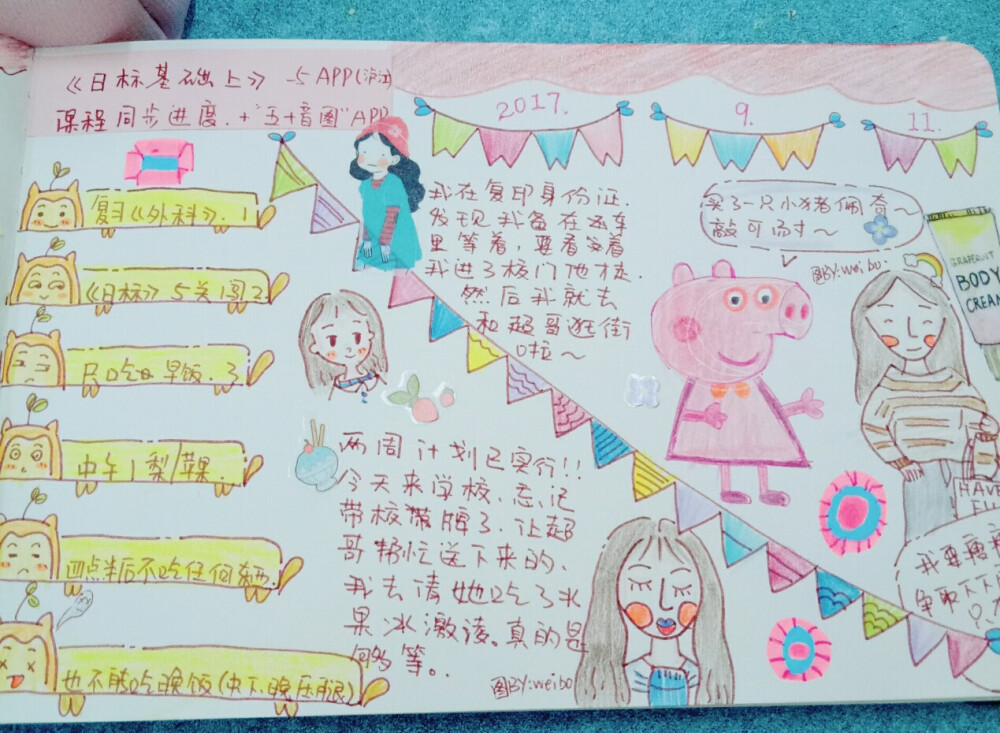 《日标基础上》与APP(沪江)
课程同步进度.+"五十音图"APP
2017.
9.
11.
复习《外科》.1
《日标》5关1阅2
只吃早饭.3
中午1梨/苹果.
四点半后不吃任何东西.
也不能吃晚饭(中下晚压腿)
我在复印身份证.
发现我爸在
车
里等着,要看着
我进了校门他才走.
然后我就去
和超哥逛街
啦~
两周计划已实行!!
今天来学校、忘记
带校牌了.让超
哥帮忙送下来的、
我去请她吃了水
果冰激凌。真的是
等。.
图BY:weibo
买了一只小猪佩奇~
敲可
~
图BY:weibo.
GRAPEFRUIT
BODY
CREAM
HAVE
我要
争取下下